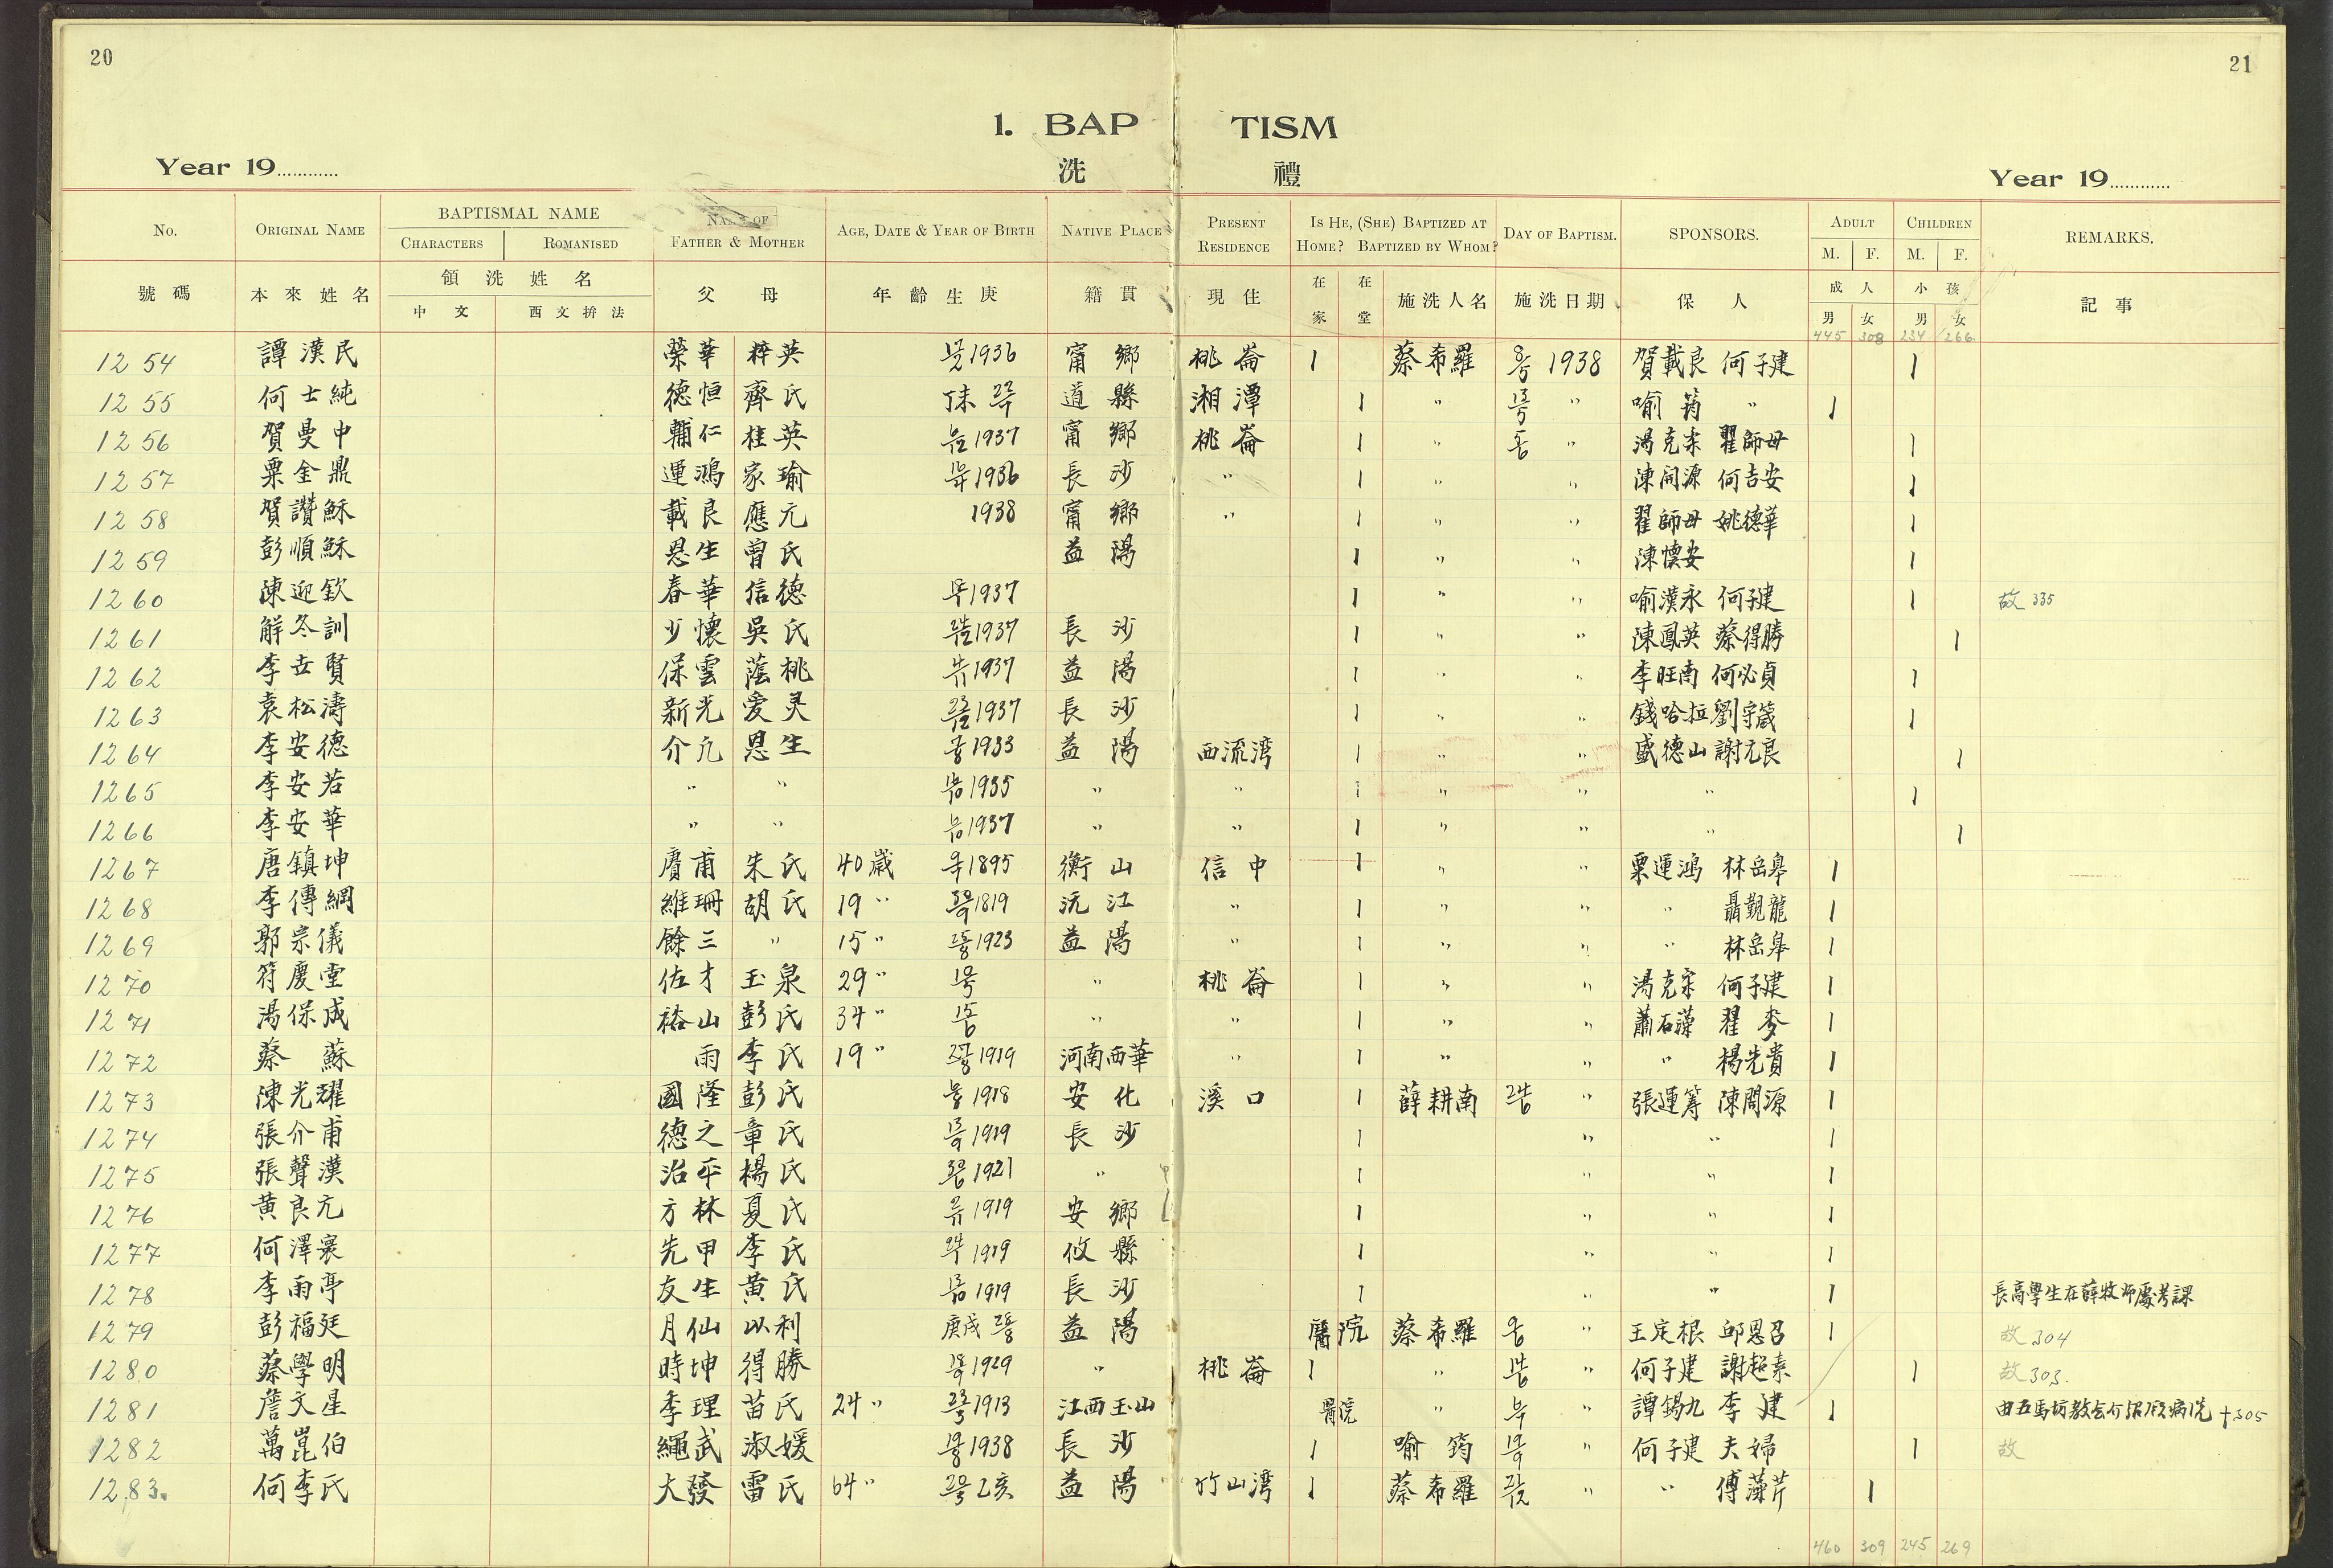 20
21
1. BAPTISM
Year 19............
洗 禮
Year 19............
No. ORIGINAL NAME BAPTISMAL NAME CHARACTERS ROMANISED FATHER & MOTHER AGE, DATE & YEAR OF BIRTH NATIVE PLACE PRESENT RESIDENCE IS HE, (SHE) BAPTIZED AT HOME? BAPTIZED BY WHOM? DAY OF BAPTISM. SPONSORS. ADULT M. F. CHILDREN M. F. REMARKS.
號碼 本來姓名 領洗姓名 中文 西文拚法 父 母 年齡生庚 籍貫 現住 在家 在堂 施洗人名 施洗日期 保人 成人 男 女 小孩 男 女 記事
445 308 234 266
1254 譚漢民 榮華 粹英 1936 甯鄉 桃崙 1 蔡希羅 8/5 1938 賀載良 何子建 1
1255 何士純 德恒 齊氏 丁未 道縣 湘潭 1 〃 〃 喻筠 〃 1
1256 賀曼中 輔仁 桂英 1937 甯鄉 桃崙 1 〃 5/6 〃 湯克宋 翟師母 1
1257 粟金鼎 運鴻 家瑜 1936 長沙 〃 1 〃 〃 陳開源 何吉安 1
1258 賀讚穌 載良 應元 1938 甯鄉 〃 1 〃 〃 翟師母 姚德華 1
1259 彭順穌 恩生 曾氏 益陽 1 〃 〃 陳懷安 1
1260 陳迎欽 春華 信德 1937 1 〃 〃 喻漢永 何子建 1 故 335
1261 解冬訓 少懷 吳氏 1937 長沙 1 〃 〃 陳鳳英 蔡得勝 1
1262 李世賢 保雲 蔭桃 1937 益陽 1 〃 〃 李旺南 何必貞 1
1263 袁松濤 新光 愛灵 1937 長沙 1 〃 〃 錢哈拉 劉守箴 1
1264 李安德 介凡 恩生 1933 益陽 西流湾 1 〃 〃 盛德山 謝元良 1
1265 李安若 〃 〃 1935 〃 〃 1 〃 〃 〃 1
1266 李安華 〃 〃 1937 〃 〃 1 〃 〃 〃 1
1267 唐鎮坤 賡甫 朱氏 40歲 1895 衡山 信中 1 〃 〃 粟運鴻 林岳皋 1
1268 李傳綱 維珊 胡氏 19〃 1819 沅江 〃 1 〃 〃 〃 聶覲龍 1
1269 郭宗儀 餘三 〃 15〃 1923 益陽 〃 1 〃 〃 〃 林岳皋 1
1270 符慶堂 佐才 玉泉 29〃 〃 桃崙 1 〃 〃 湯克宋 何子建 1
1271 湯保成 裕山 彭氏 34〃 〃 〃 1 〃 〃 蕭石藻 翟麥 1
1272 蔡蘇 雨 李氏 19〃 1919 河南西華 〃 1 〃 〃 〃 楊光貴 1
1273 陳光耀 國隆 彭氏 1918 安化 溪口 1 薛耕南 24/6 〃 張運籌 陳開源 1
1274 張介甫 德之 章氏 1919 長沙 1 〃 〃 1
1275 張聲漢 治平 楊氏 1921 〃 1 〃 〃 1
1276 黃良亢 方林 夏氏 1919 安鄉 1 〃 〃 1
1277 何澤寰 先甲 李氏 1919 攸縣 1 〃 〃 1
1278 李雨亭 友生 黃氏 1919 長沙 1 〃 〃 1 長高學生在薛牧师處考課
1279 彭福廷 月仙 以利 庚戌 益陽 醫院 蔡希羅 〃 王定根 邱恩召 1 故 304
1280 蔡學明 時坤 得勝 1929 〃 桃崙 1 〃 〃 何子建 謝超素 1 故 303.
1281 詹文星 李理 苗氏 24〃 1913 江西玉山 醫院 〃 〃 譚錫九 李建 1 †305
1282 萬崑伯 繩武 淑媛 1938 長沙 1 喻筠 〃 何子建 夫婦 1 故
1283. 何李氏 大發 雷氏 64〃 乙亥 益陽 竹山湾 1 蔡希羅 〃 〃 傅藻芹 1
460 309 245 269